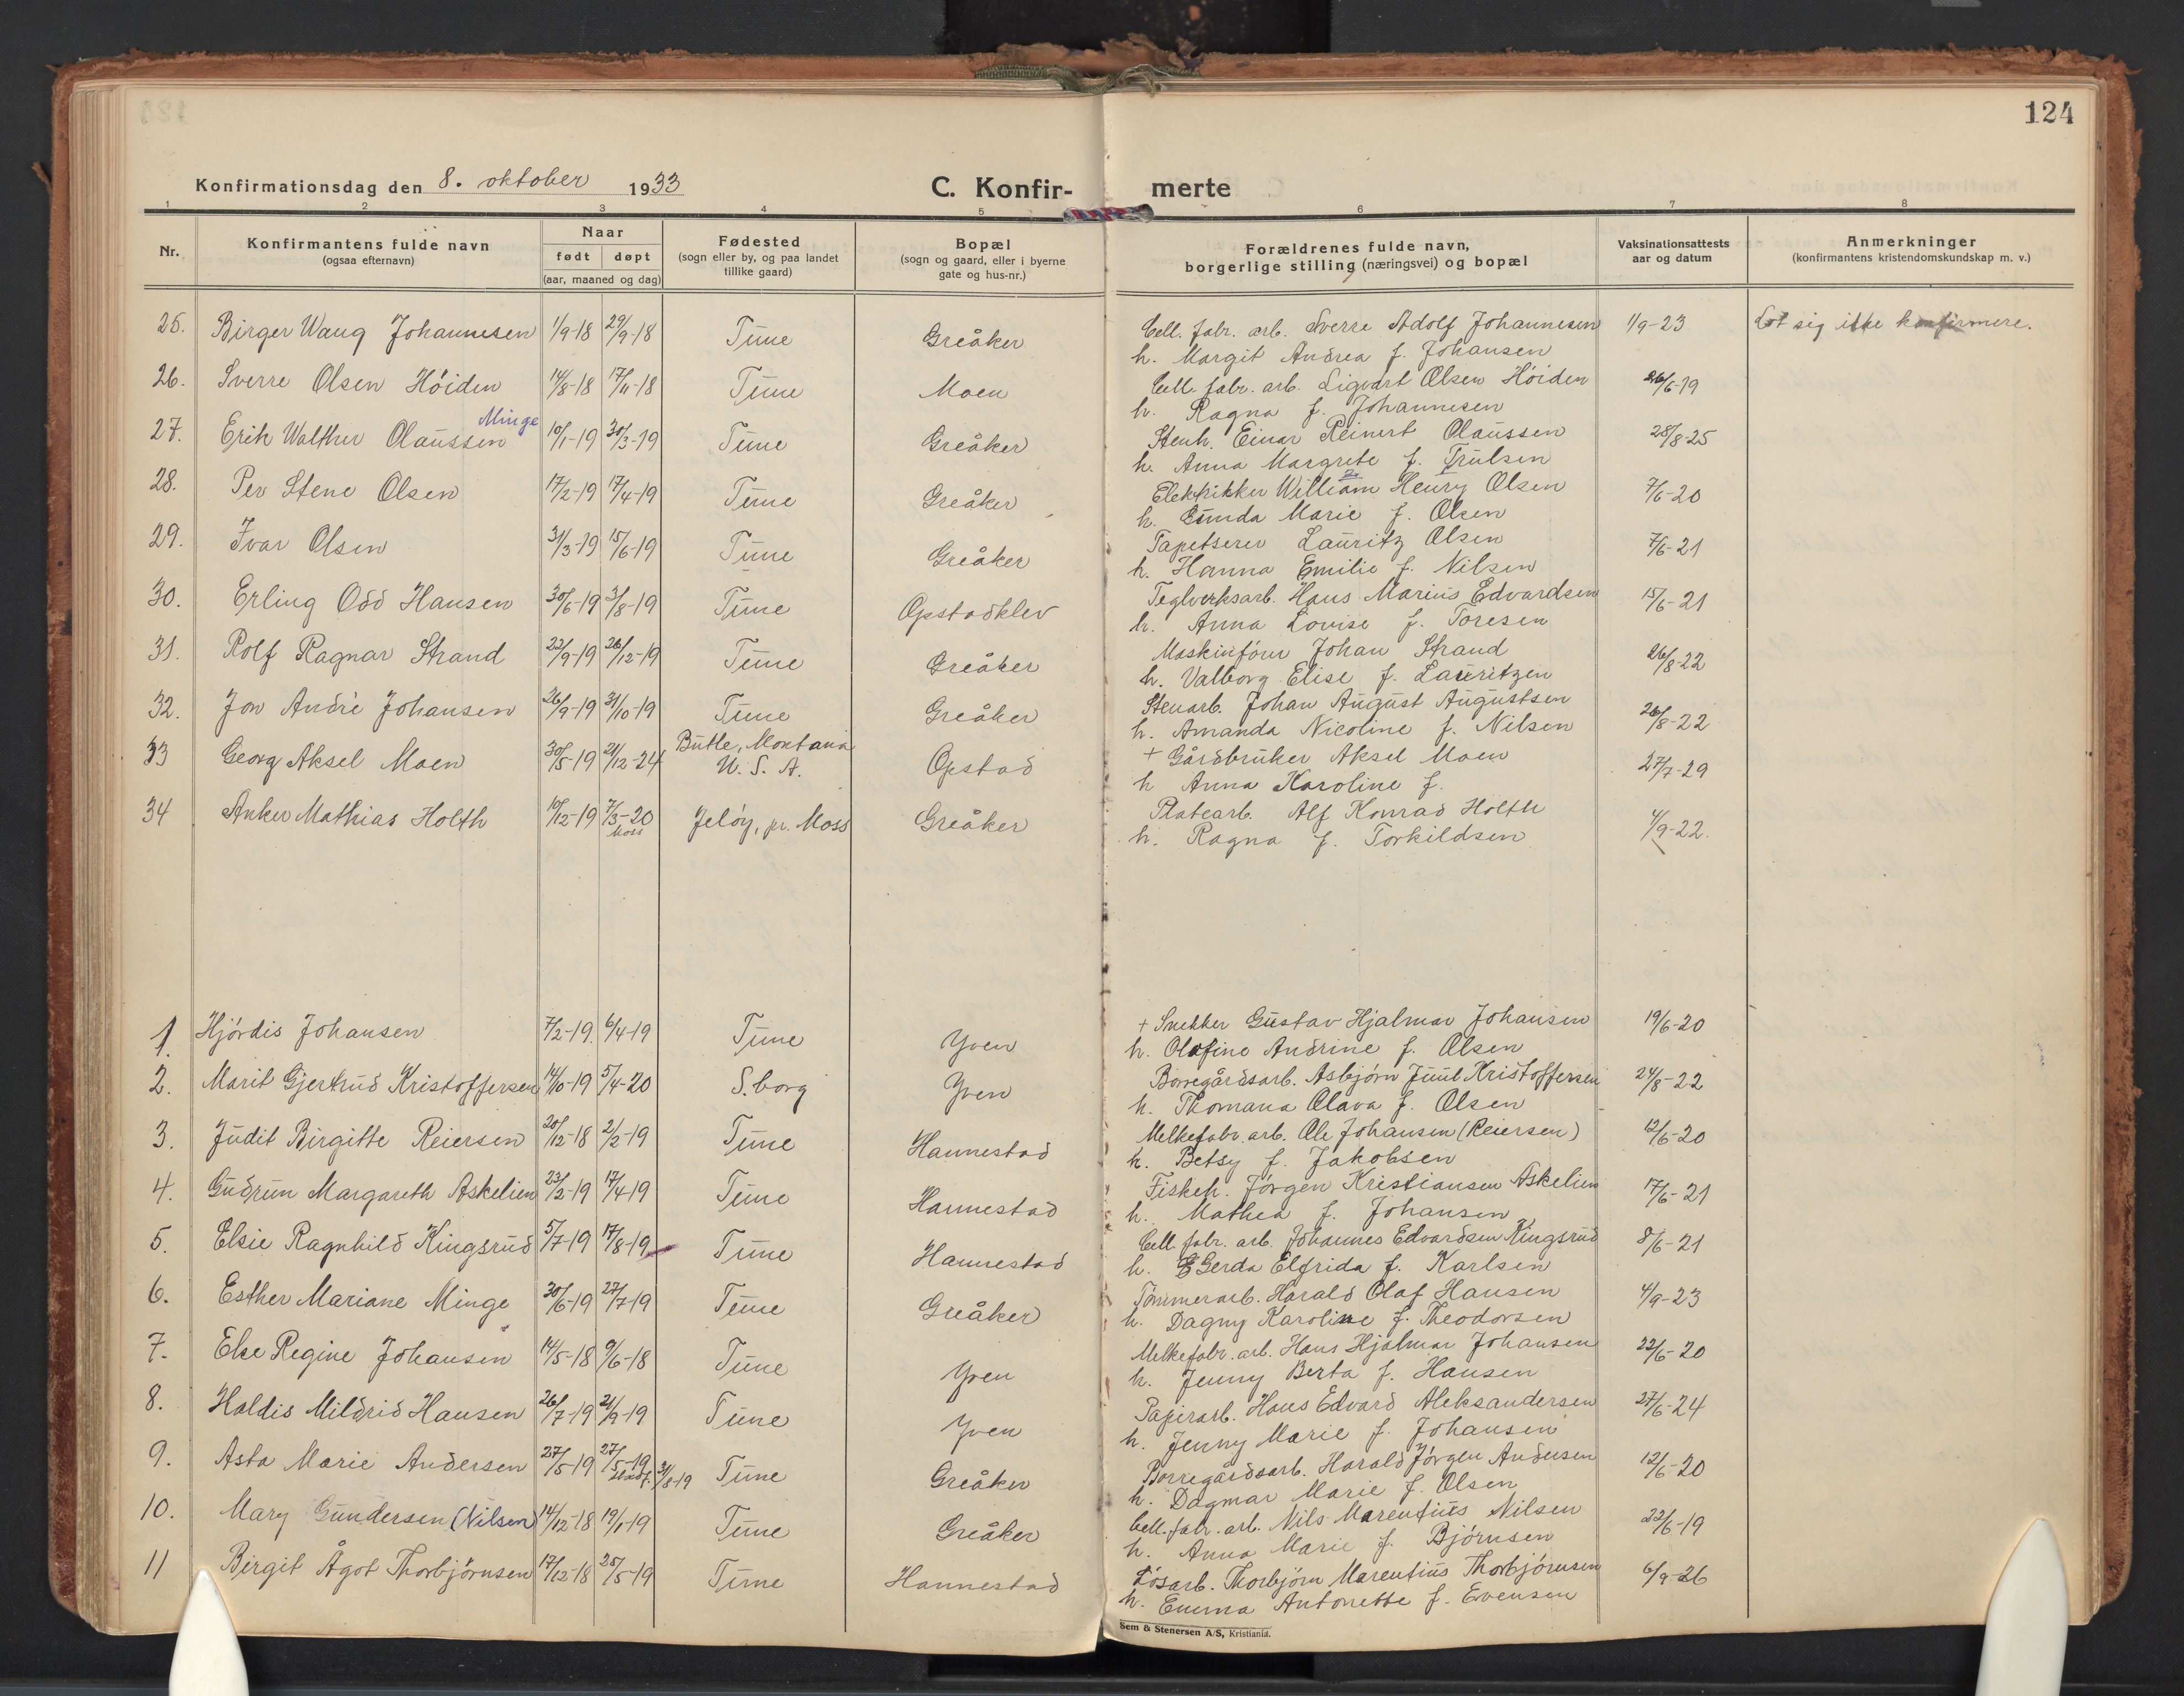 124
Konfirmationsdag den 8. oktober 1933 C. Konfir- merte
1 2 3 4 5 6 7 8
Nr. Konfirmantens fulde navn (ogsaa efternavn) Naar født døpt (aar, maaned og dag) Fødested (sogn eller by, og paa landet tillike gaard) Bopæl (sogn og gaard, eller i byerne gate og hus-nr.) Forældrenes fulde navn, borgerlige stilling (næringsvei) og bopæl Vaksinationsattests aar og datum Anmerkninger (konfirmantens kristendomskundskap m. v.)
25. Birger Waug Johannesen 1/9-18 29/9-18 Tune Greåker Cell. fabr. arb. Sverre Adolf Johannesen 1/9-23 Lot sig ikke konfirmere.
h. Margit Andrea f. Johansen
26. Sverre Olsen Höiden 14/8-18 17/11-18 Tune Moen Cell. fabr. arb. Sigvart Olsen Höiden 26/6-19
h. Ragna f. Johannesen
Minge
27. Erik Walther Olaussen 10/1-19 30/3-19 Tune Greåker Stenh. Einar Reinert Olaussen 28/8-25
h. Anna Margrete f. Trulsen
28. Per Stene Olsen 17/2-19 17/4-19 Tune Greåker Elektrikker William Henry Olsen 7/6-20
h. Gunda Marie f. Olsen
29. Ivar Olsen 31/3-19 15/6-19 Tune Greåker Tapetserer Lauritz Olsen 7/6-21
h. Hanna Emilie f. Nilsen
30. Erling Odd Hansen 30/6-19 3/8-19 Tune Opstadklev Teglverksarb. Hans Marius Edvardsen 15/6-21
h. Anna Lovise f. Toresen
31. Rolf Ragnar Strand 22/9-19 26/12-19 Tune Greåker Maskinförer Johan Strand 26/8-22
h. Valborg Elise f. Lauritzen
32. Jon André Johansen 26/9-19 31/10-19 Tune Greåker Stenarb. Johan August Augustsen 26/8-22
h. Amanda Nicoline f. Nilsen
33 Georg Aksel Moen 30/5-19 21/12-24 Butte, Montana U. S. A. Opstad + Gårdbruker Aksel Moen 27/7-29
h Anna Karoline f.
34 Anker Mathias Holth 10/12-19 7/3-20 Moss Jelöy, pr. Moss Greåker Platearb. Alf Konrad Holth 4/9-22.
h. Ragna f. Torkildsen
1. Hjördis Johansen 7/2-19. 6/4-19 Tune Yven + Snekker Gustav Hjalmar Johansen 19/6-20
h. Olofine Andrine f. Olsen
2. Marit Gjertrud Kristoffersen 14/10-19 5/4-20 S.borg Yven Borregårdsarb. Asbjörn Juul Kristoffersen 24/8-22
h. Thomana Olava f. Olsen
3. Judit Birgitte Reiersen 20/12-18 2/2-19 Tune Hannestad Melkefabr. arb. Ole Johansen (Reiersen) 12/6-20
h. Betsy f. Jakobsen
4. Gudrun Margareth Askelien 23/2-19 17/4-19 Tune Hannestad Fiskeh. Jörgen Kristiansen Askelien 17/6-21
h. Mathea f. Johansen
5. Elsie Ragnhild Kingsrud 5/7-19 17/8-19 Tune Hannestad Cell. fabr. arb. Johannes Edvardsen Kingsrud 8/6-21
h. Gerda Elfrida f. Karlsen
6. Esther Mariane Minge 30/6-19 27/7-19 Tune Greåker Tömmerarb. Harald Olaf Hansen 4/9-23
h. Dagny Karoline f. Theodorsen
7. Else Regine Johansen 14/5-18 9/6-18 Tune Yven Melkefabr. arb. Hans Hjalmar Johansen 22/6-20
h. Jenny Berta f. Hansen
8. Haldis Mildrid Hansen 26/7-19 21/9-19 Tune Yven Papirarb. Hans Edvard Aleksandersen 27/6-24
h. Jenny Marie f. Johansen
9. Asta Marie Andersen 27/5-19 27/5-19 31/8-19 Tune Greåker Borregårdsarb. Harald Jörgen Andersen 12/6-20
h. Dagmar Marie f. Olsen
10. Mary Gundersen (Nilsen) 14/12-18 19/1-19 Tune Greåker Cell. fabr. arb. Nils Marentius Nilsen 22/6-19
h. Anna Marie f. Björnsen
11 Birgit Ågot Thorbjörnsen 17/12-18 25/5-19 Tune Hannestad Lösarb. Thorbjörn Marentius Thorbjörnsen 6/9-26
h. Emma Antonette f. Evensen
Sem & Stenersen A/S, Kristiania.